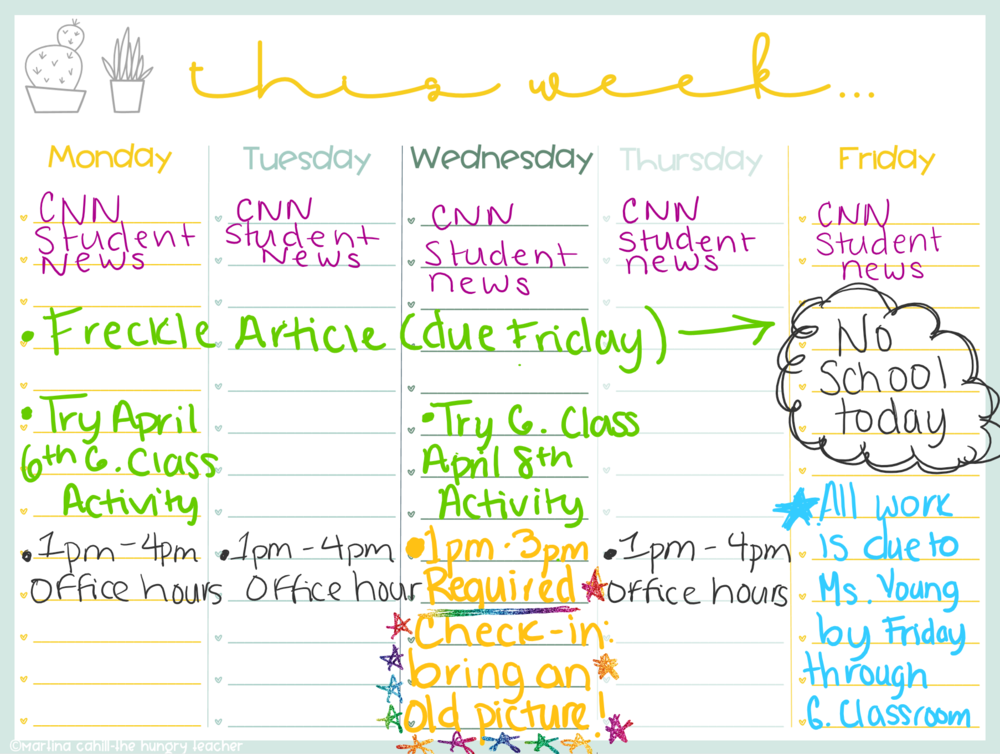 this week...
Monday
CNN
Student
News
• Freckle Article (due Friday) →
• Try April
6th G. Class
Activity
• 1pm - 4pm
Office hours
Tuesday
CNN
Student
News
• 1pm - 4pm
Office hour
Wednesday
CNN
Student
news
• Try G. Class
April 8th
Activity
• 1pm - 3pm
Required
Check-in:
bring an
old picture!
Thursday
CNN
Student
news
• 1pm - 4pm
Office hours
Friday
CNN
Student
news
No
School
today
All work
is due to
Ms. Young
by Friday
through
G. Classroom
©Martina Cahill-the hungry teacher